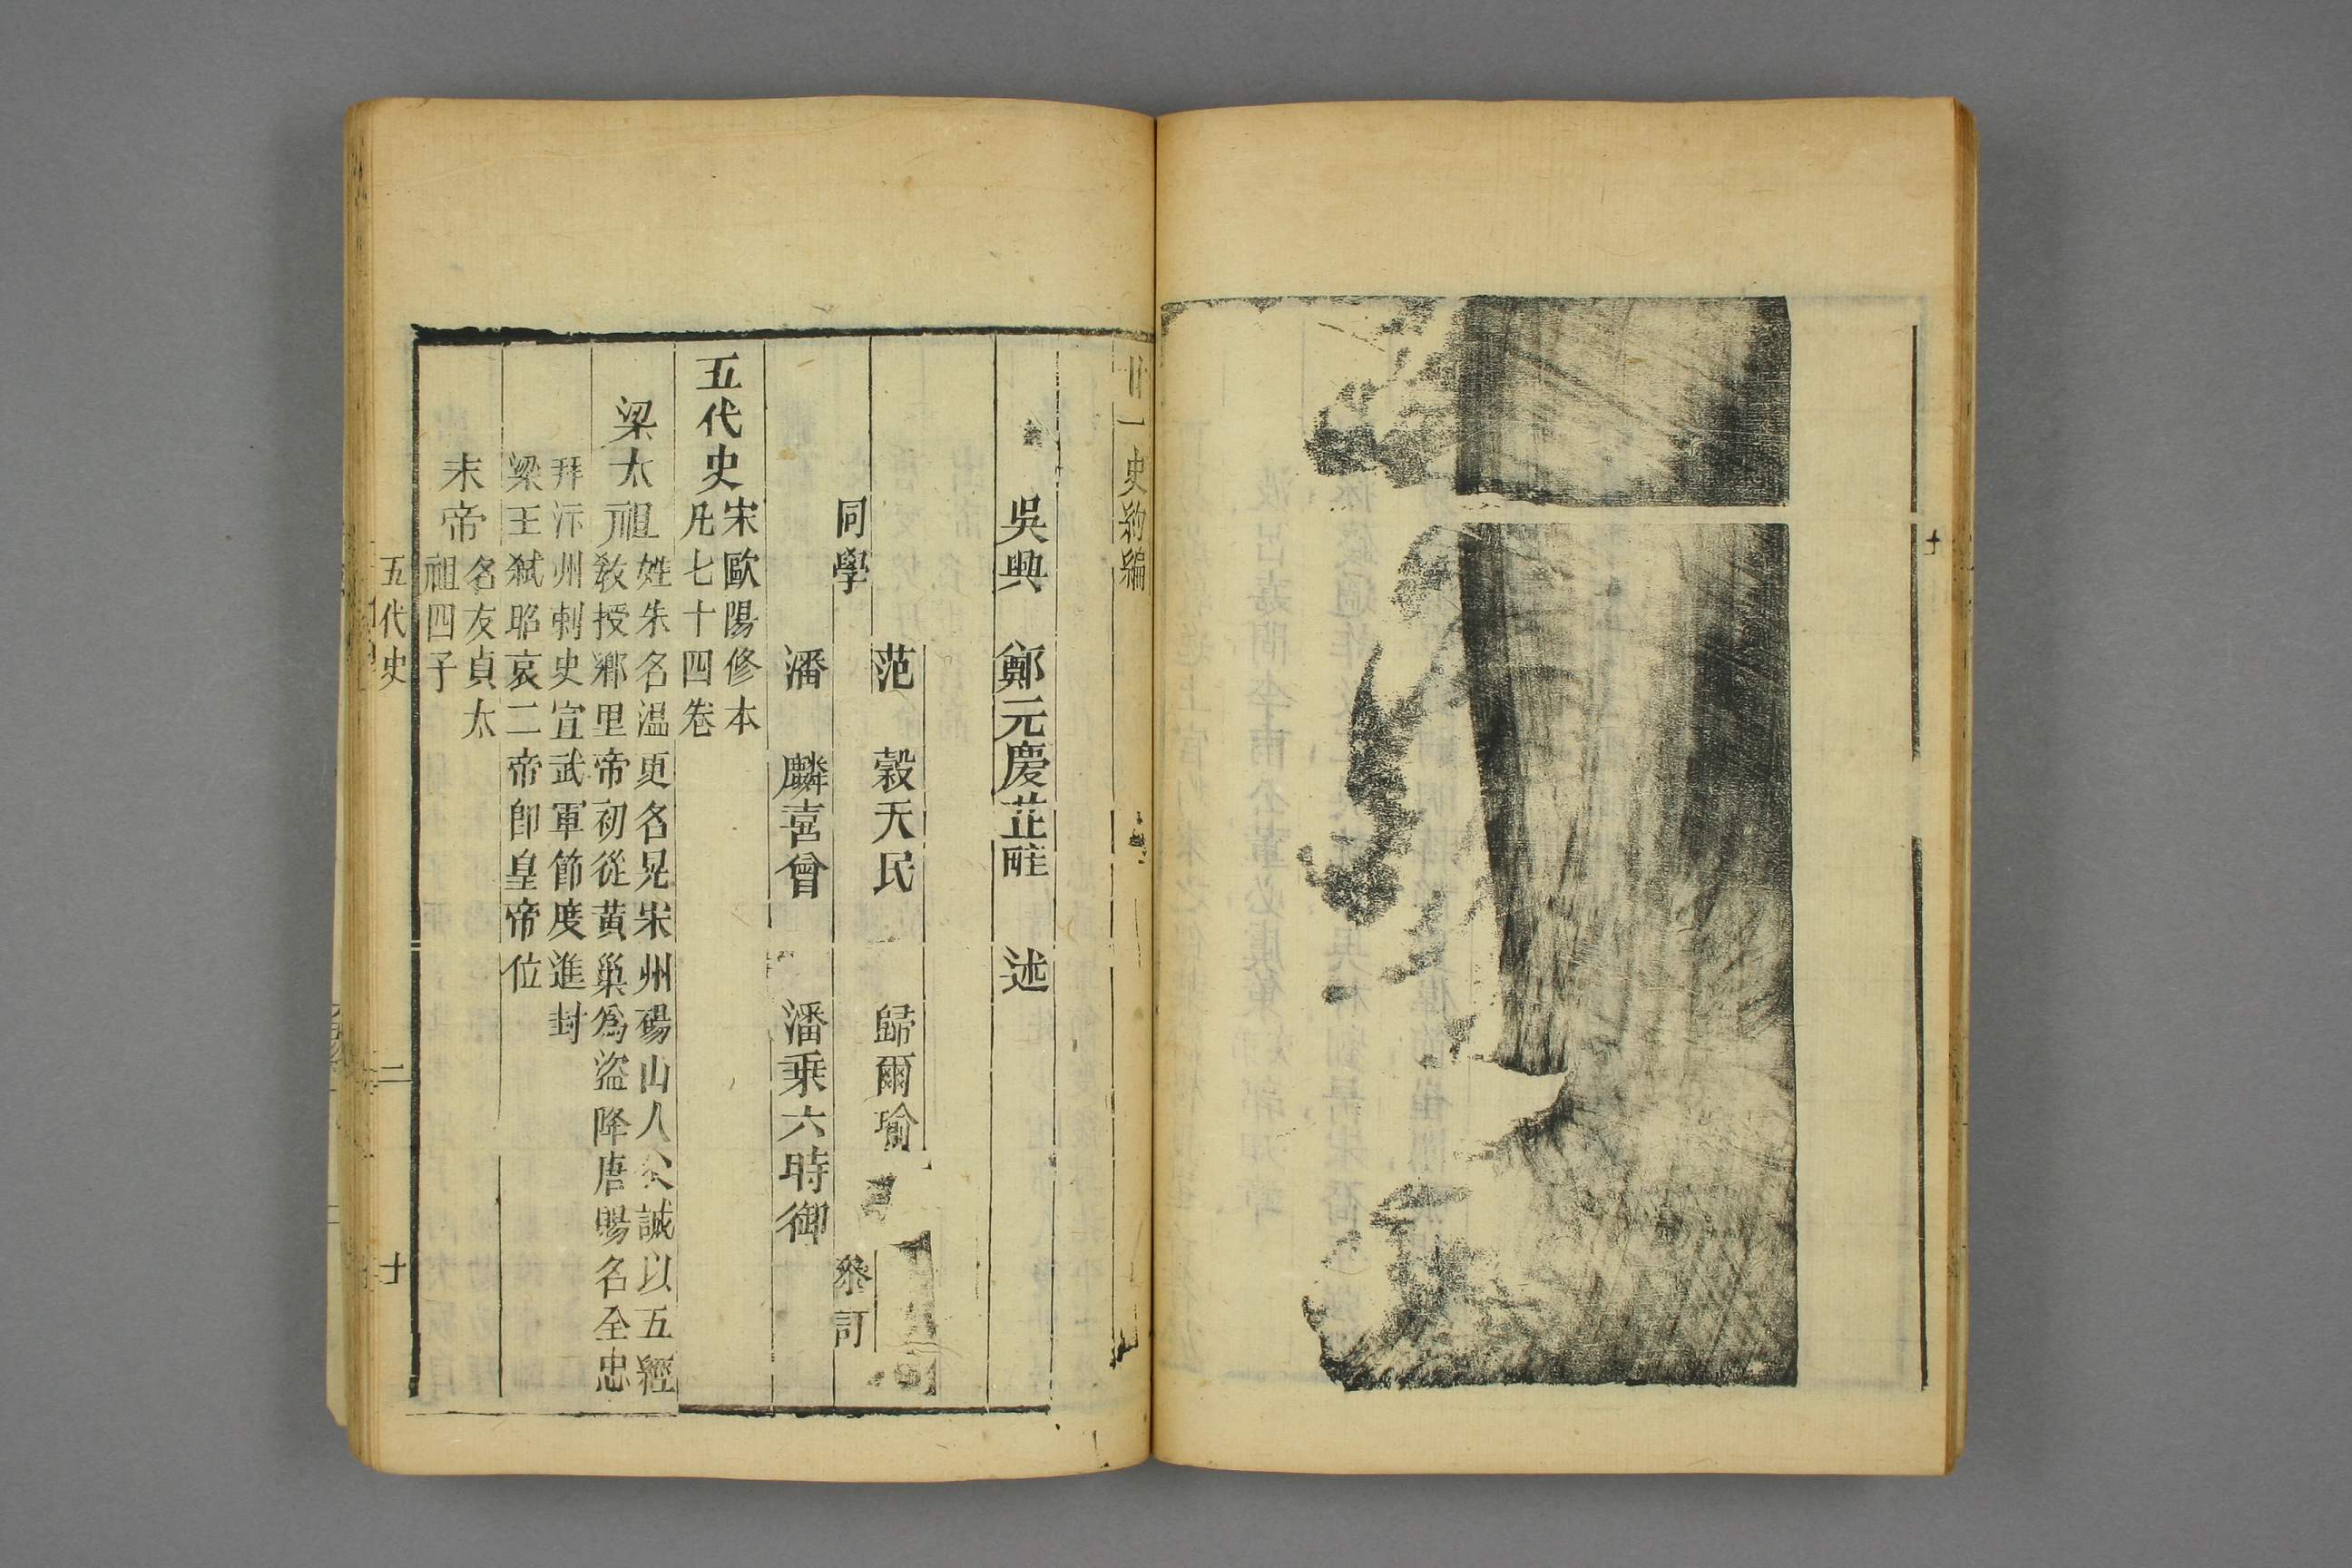 七
廿一史約編
吳興 鄭元慶芷畦 述
范 穀天民 歸爾瑜
同學 參訂
潘 麟喜曾 潘乘六時御
五代史宋歐陽修本
凡七十四卷
梁太祖姓朱名温更名晃宋州碭山人父誠以五經
教授鄉里帝初從黃巢爲盜降唐賜名全忠
拜汴州刺史宣武軍節度進封
梁王弑昭哀二帝卽皇帝位
末帝名友貞太
祖四子
五代史 二 十